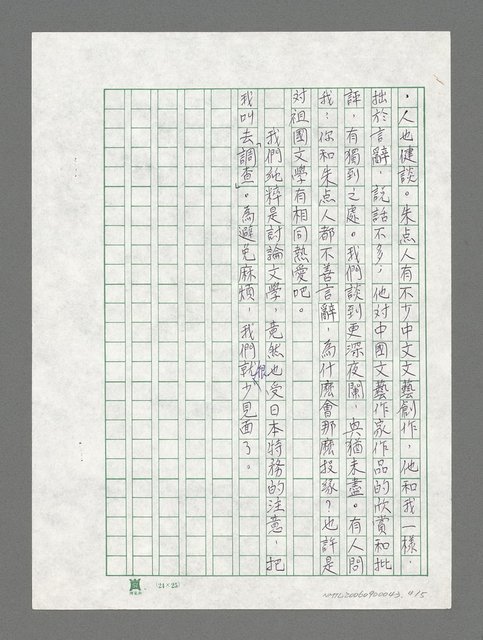 ，人也健談。朱点人有不少中文文藝創作，他和我一樣，
拙於言辭，說話不多，他对中國文藝作家作品的欣賞和批
評，有獨到之處。我們談到更深夜闌，興猶未盡。有人問
我：你和朱点人都不善言辭，為什麼會那麼投緣？也許是
对祖國文學有相同熱愛吧。
我們純粹是討論文學，竟然也受日本特務的注意，把
我叫去「調查」。為避免麻煩，我們就很少見面了。
(24×25)
NMTL20060900043. 4/5